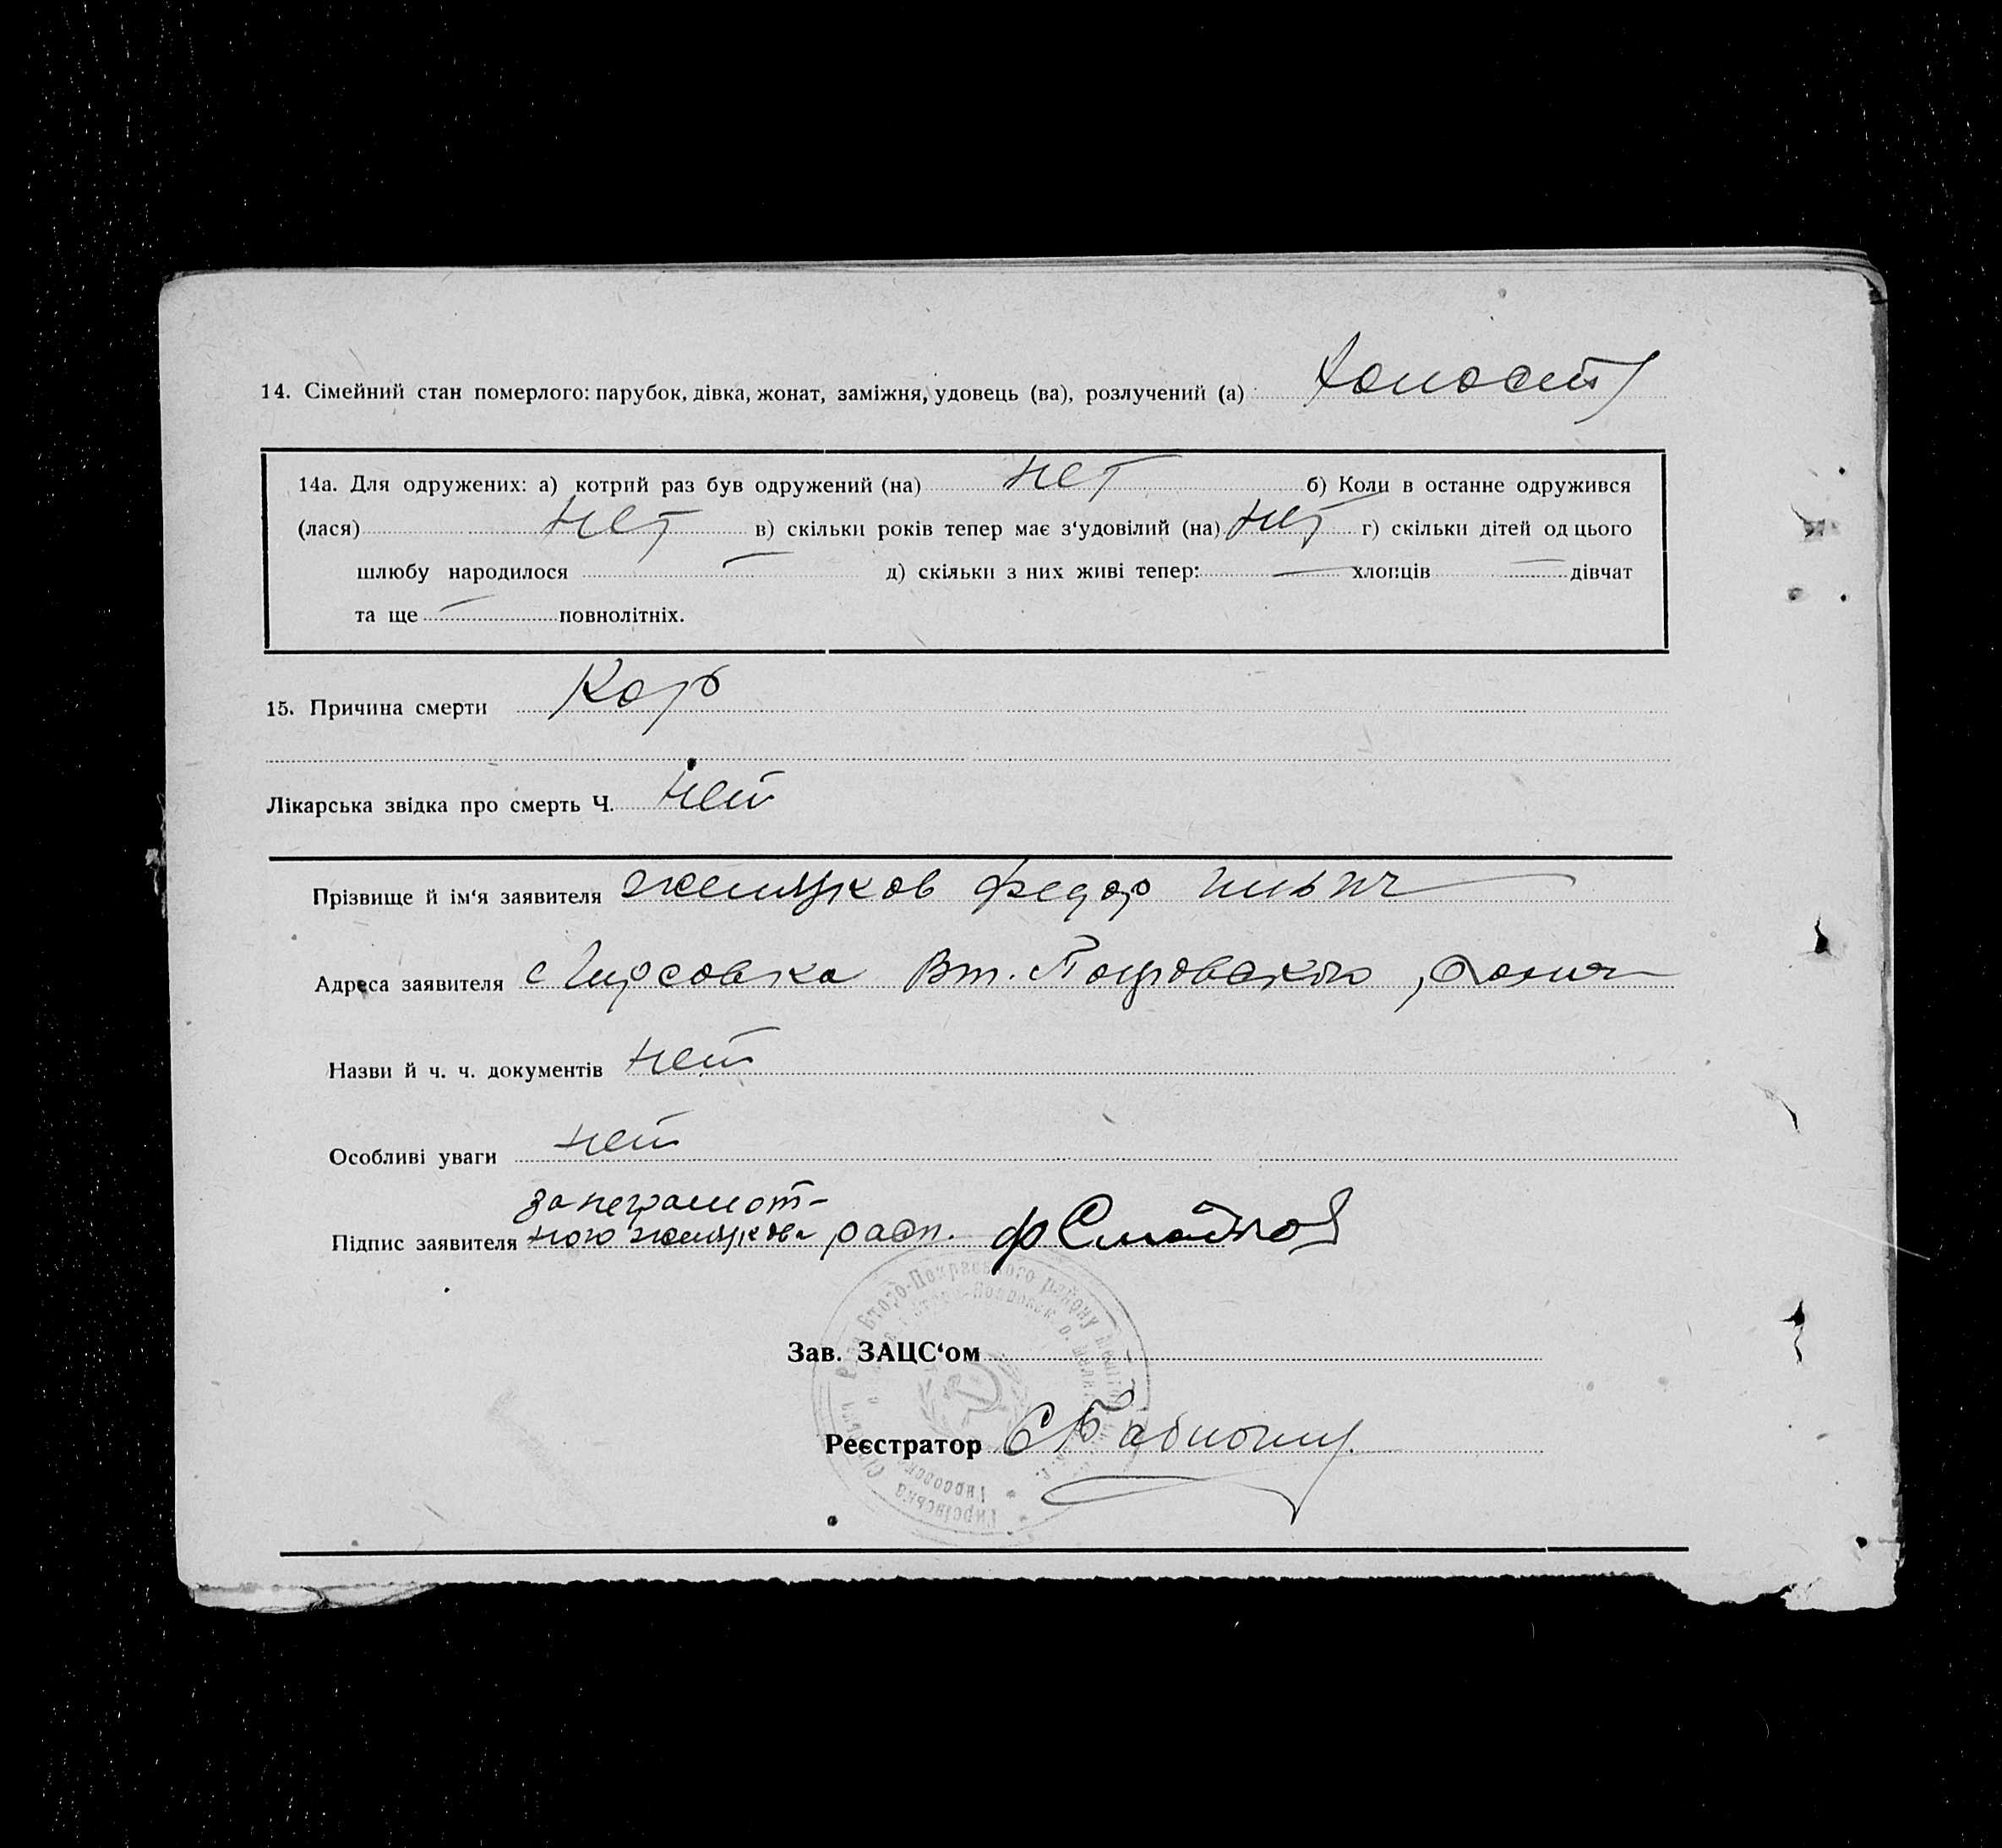 14. Сімейний стан померлого: парубок, дівка, жонат, заміжня, удовець (ва), розлучений (а) холост
14а. Для одружених: а) котрий раз був одружений (на) нет б) Коли в останне одружився
(лася) нет в) скільки років тепер має з‘удовілий (на) нет г) скільки дітей од цього
шлюбу народилося — д) скільки з них живі тепер: — хлопців — дівчат
та ще — повнолітніх.
15. Причина смерти Корь
Лікарська звідка про смерть Ч. нет
Прізвище й ім‘я заявителя Федор
Адреса заявителя с Гирсовка Вт. Покровского
Назви й ч. ч. документів нет
Особливі уваги нет
за неграмот-
Підпис заявителя ного расп.
Зав. ЗАЦС‘ом
Реєстратор